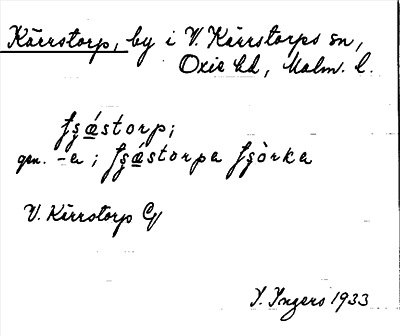 Kärrstorp, by i V. Kärrstorps sn,
Oxie hd, Malm. l.
ʃʂǽstorp;
gen. -a; ʃʂǽstorpa ʃʂòrka
V. Kärrstorp
I. Ingers 1933